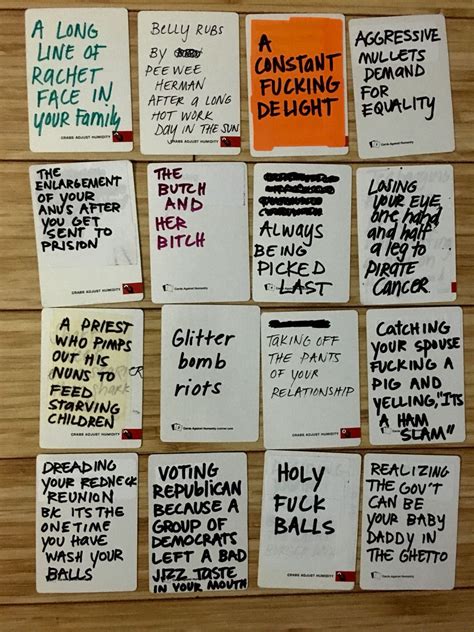 A LONG
LINE OF
RACHET
FACE IN
YOUR FAMILY
CRABS ADJUST HUMIDITY
BELLY RUBS
BY
PEE WEE
HERMAN
AFTER A LONG
HOT WORK
DAY IN THE SUN
A
CONSTANT
FUCKING
DELIGHT
AGGRESSIVE
MULLETS
DEMAND
FOR
EQUALITY
Cards Against Humanity
THE
ENLARGEMENT
OF YOUR
ANUS AFTER
YOU GET
SENT TO
PRISION
CRABS ADJUST HUMIDITY
THE
BUTCH
AND
HER
BITCH
Cards Against Humanity
ALWAYS
BEING
PICKED
LAST
LOSING
YOUR EYE,
one hand
and half
a leg to
PIRATE
CANCER
A PRIEST
WHO PIMPS
OUT HIS
NUNS TO
FEED
STARVING
CHILDREN
Glitter
bomb
riots
Cards Against Humanity
TAKING OFF
THE PANTS
OF YOUR
RELATIONSHIP
CRABS ADJUST HUMIDITY
CATCHING
YOUR SPOUSE
FUCKING A
PIG AND
YELLING, "ITS
A HAM
SLAM"
DREADING
YOUR REDNECK
REUNION
B/C ITS THE
ONE TIME
YOU HAVE
WASH YOUR
BALLS
VOTING
REPUBLICAN
BECAUSE A
GROUP OF
DEMOCRATS
LEFT A BAD
JIZZ TASTE
IN YOUR MOUTH
HOLY
FUCK
BALLS
CRABS ADJUST HUMIDITY
REALIZING
THE GOV'T
CAN BE
YOUR BABY
DADDY IN
THE GHETTO
Cards Against Humanity